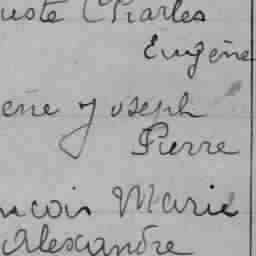 uste Charles
Eugène
ène Joseph
Pierre
ncois Marie
Alexandre